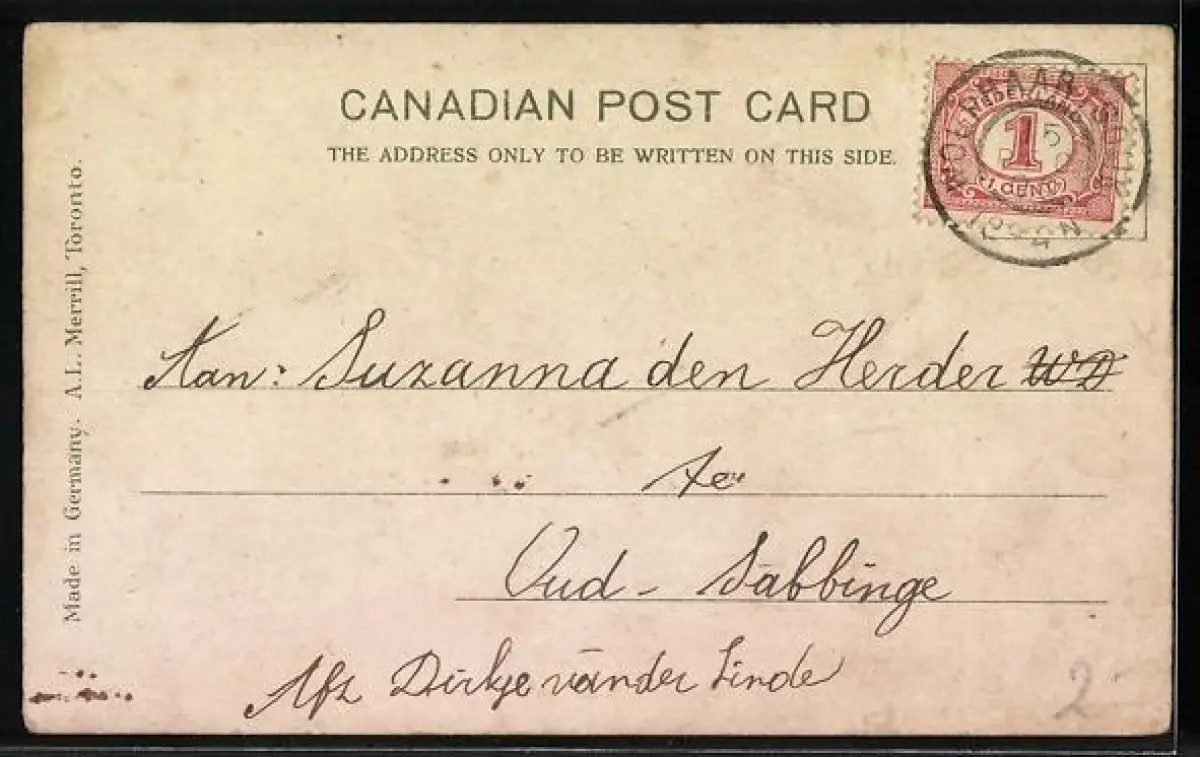 CANADIAN POST CARD
THE ADDRESS ONLY TO BE WRITTEN ON THIS SIDE.
NEDERLAND
1
(1 CENT)
Made in Germany. A.L. Merrill, Toronto.
Aan: Suzanna den Herder
te
Oud - Sabbinge
Afz Dirkje van der Linde
2-